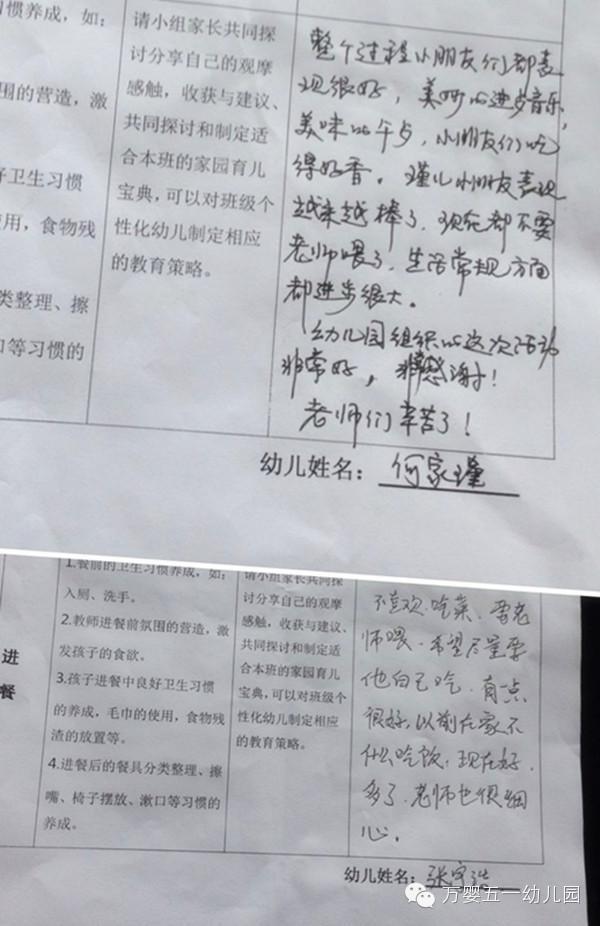 习惯养成，如：
围的营造，激
好卫生习惯
使用，食物残
类整理、擦
口等习惯的
请小组家长共同探
讨分享自己的观摩
感触，收获与建议、
共同探讨和制定适
合本班的家园育儿
宝典，可以对班级个
性化幼儿制定相应
的教育策略。
整个过程小朋友们都表
现很好，美妙的进步音乐，
美味的午点，小朋友们吃
得好香。瑾儿小朋友表现
越来越棒了，现在都不要
老师喂了，生活常规方面
都进步很大。
幼儿园组织的这次活动
非常好，非常感谢！
老师们辛苦了！
幼儿姓名：何家瑾
进
餐
1.餐前的卫生习惯养成，如；
入厕、洗手。
2.教师进餐前氛围的营造，激
发孩子的食欲。
3.孩子进餐中良好卫生习惯
的养成，毛巾的使用，食物残
渣的放置等。
4.进餐后的餐具分类整理、擦
嘴、椅子摆放、漱口等习惯的
养成。
请小组家长共同探
讨分享自己的观摩
感触，收获与建议、
共同探讨和制定适
合本班的家园育儿
宝典，可以对班级个
性化幼儿制定相应
的教育策略。
不喜欢吃菜，要老
师喂，希望尽量要
他自己吃，有一点
很好，以前在家不
什么吃饭，现在好
多了，老师也很细
心。
幼儿姓名：张
万婴五一幼儿园